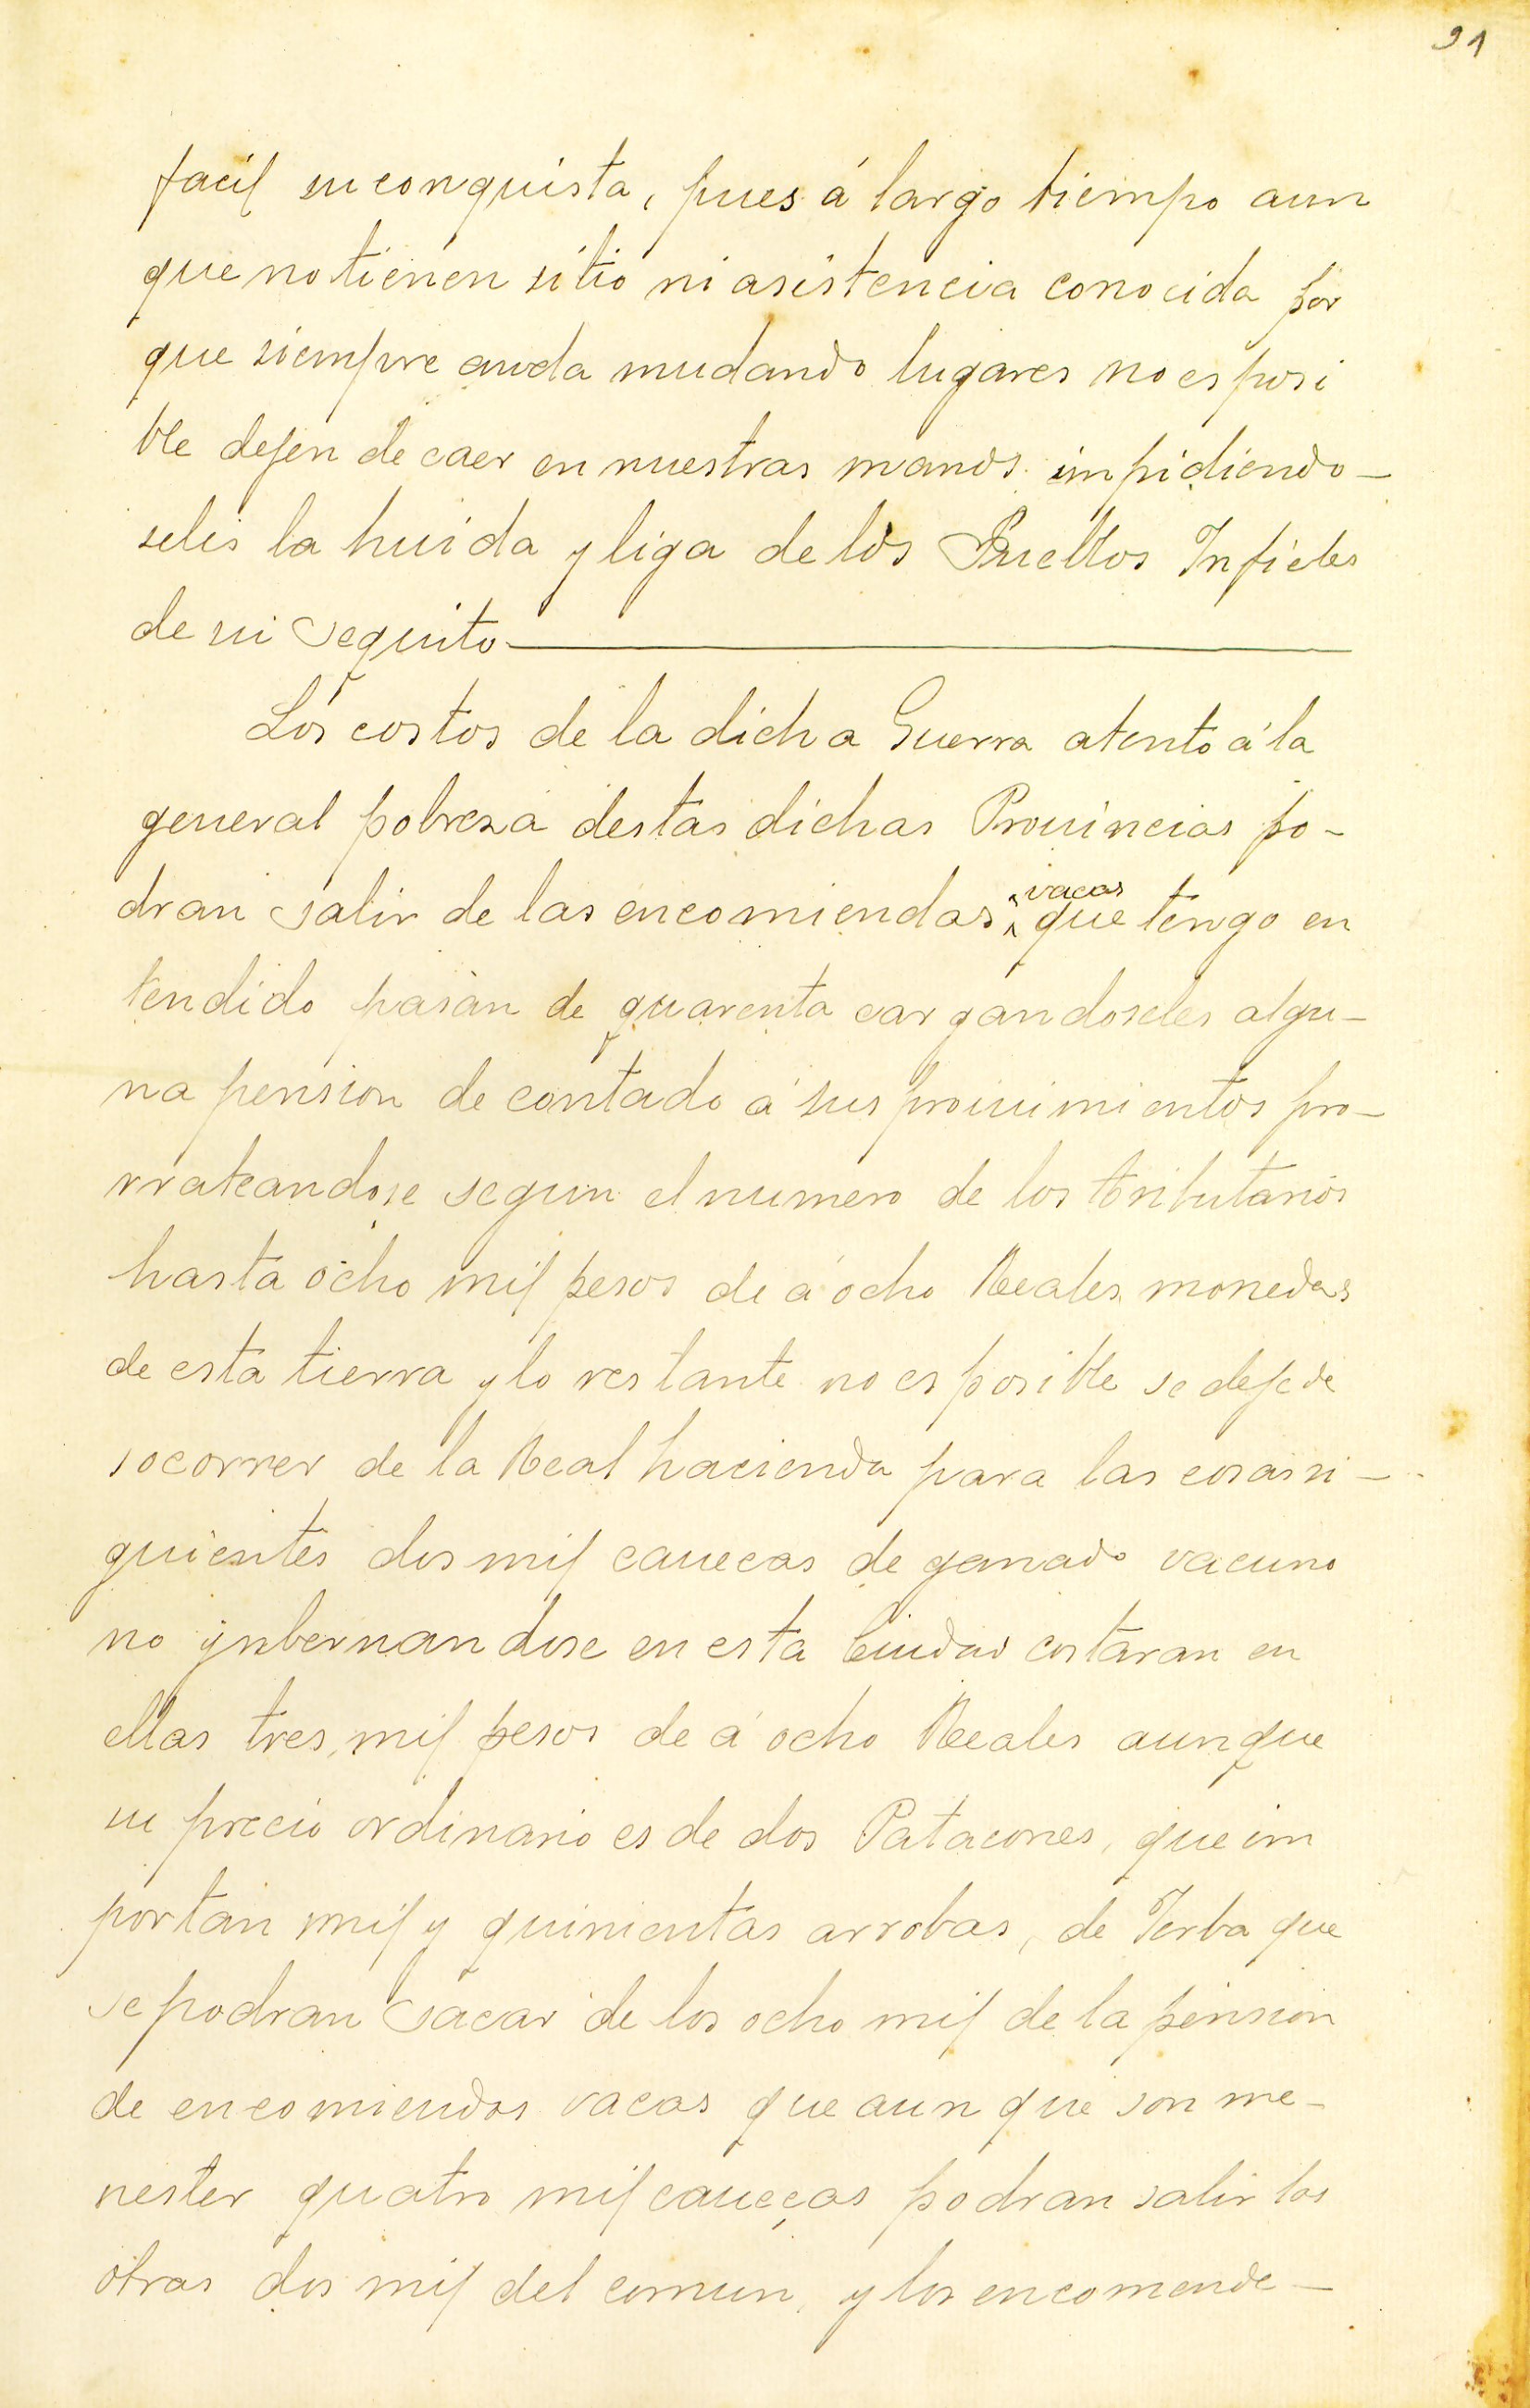 91
facil su conquista, pues á largo tiempo aun
que no tienen sitio ni asistencia conocida por
que siempre anda mudando lugares no es posi
ble dejen de caer en nuestras manos impidiendo-
seles la huida y liga de los Pueblos Infieles
de su sequito
Los costos de la dicha Guerra atento á la
general pobreza destas dichas Prouincias po-
dran salir de las encomiendas vacas que tengo en
tendido pasan de quarenta cargandoseles algu-
na pension de contado á sus prouimientos pro-
rrateandose segun el numero de los tributarios
hasta ocho mil pesos de á ocho Reales monedas
de esta tierra y lo restante no es posible se deje de
socorrer de la Real hacienda para las cosas si-
guientes dos mil cauecas de ganado vacuno
no ynbernandose en esta Ciudad costaran en
ellas tres mil pesos de á ocho Reales aunque
su precio ordinario es de dos Patacones, que im
portan mil y quinientas arrobas, de Yerba que
se podran sacar de los ocho mil de la pension
de encomiendas vacas que aun que son me-
nester quatro mil caueças podran salir las
otras dos mil del comun, y los encomende-